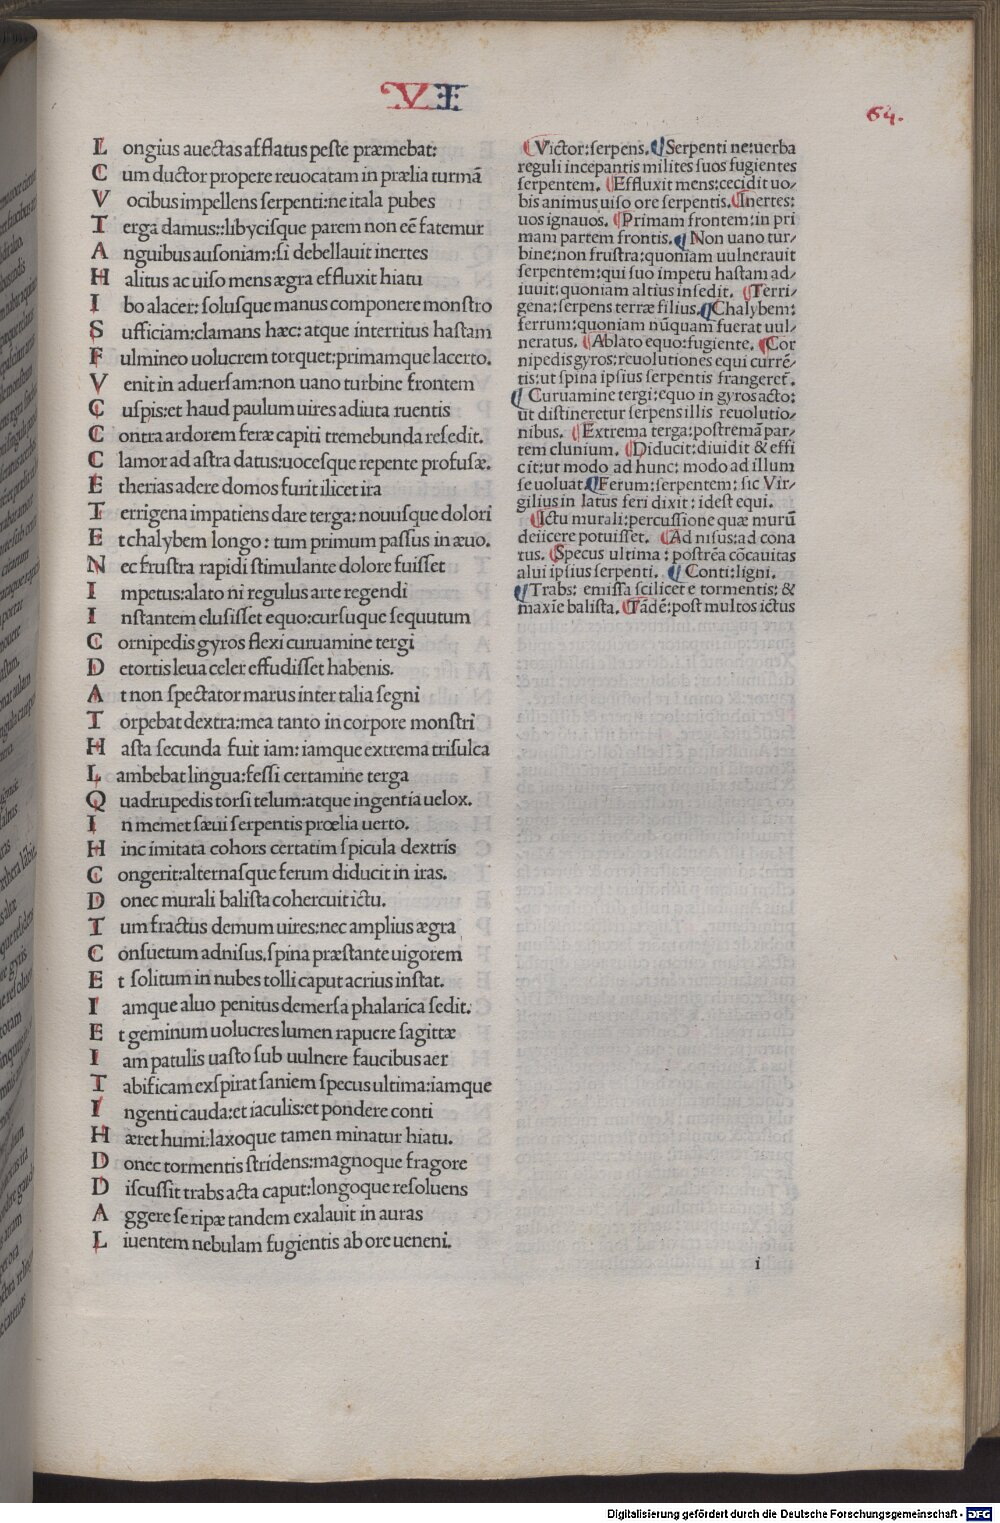 VI
64.
Longius auectas afflatus peste præmebat:
Cum ductor propere reuocatam in prælia turmā
Vocibus impellens serpenti: ne itala pubes
Terga damus::libycisque parem non eē fatemur
Anguibus ausoniam: si debellauit inertes
Halitus ac uiso mens ægra effluxit hiatu
Ibo alacer: solusque manus componere monstro
Sufficiam: clamans hæc: atque interritus hastam
Fulmineo uolucrem torquet: primamque lacerto.
Venit in aduersam: non uano turbine frontem
Cuspis: et haud paulum uires adiuta ruentis
Contra ardorem feræ capiti tremebunda resedit.
Clamor ad astra datus: uocesque repente profusæ.
Etherias adere domos furit ilicet ira
Terrigena impatiens dare terga: nouusque dolori
Et chalybem longo: tum primum passus in æuo.
Nec frustra rapidi stimulante dolore fuisset
Impetus: alato ni regulus arte regendi
Instantem elusisset equo: cursuque sequutum
Cornipedis gyros flexi curuamine tergi
Detortis leua celer effudisset habenis.
At non spectator marus inter talia segni
Torpebat dextra: mea tanto in corpore monstri
Hasta secunda fuit iam: iamque extrema trisulca
Lambebat lingua: fessi certamine terga
Quadrupedis torsi telum: atque ingentia uelox.
In memet sæui serpentis prœlia uerto.
Hinc imitata cohors certatim spicula dextris
Congerit: alternasque ferum diducit in iras.
Donec murali balista cohercuit ictu.
Tum fractus demum uires: nec amplius ægra
Consuetum adnisus. spina præstante uigorem
Et solitum in nubes tolli caput acrius instat.
Iamque aluo penitus demersa phalarica sedit.
Et geminum uolucres lumen rapuere sagittæ
Iam patulis uasto sub uulnere faucibus aer
Tabificam exspirat saniem specus ultima: iamque
Ingenti cauda: et iaculis: et pondere conti
Hæret humi: laxoque tamen minatur hiatu.
Donec tormentis stridens: magnoque fragore
Discussit trabs acta caput: longoque resoluens
Aggere se ripæ tandem exalauit in auras
Liuentem nebulam fugientis ab ore ueneni.
¶Victor: serpens. ¶Serpenti ne: uerba
reguli incepantis milites suos fugientes
serpentem. ¶Effluxit mens: cecidit uo/
bis animus uiso ore serpentis. ¶Inertes:
uos ignauos. ¶Primam frontem: in pri
mam partem frontis. ¶Non uano tur/
bine: non frustra: quoniam uulnerauit
serpentem: qui suo impetu hastam ad/
iuuit: quoniam altius insedit. ¶Terri/
gena: serpens terræ filius. ¶Chalybem:
ferrum: quoniam nūquam fuerat uul/
neratus. ¶Ablato equo: fugiente. ¶Cor
nipedis gyros: reuolutiones equi currē/
tis: ut spina ipsius serpentis frangeret̃.
¶Curuamine tergi: equo in gyros acto:
ut distineretur serpens illis reuolutio/
nibus. ¶Extrema terga: postremā par/
tem clunium. ¶Diducit: diuidit & effi
cit: ut modo ad hunc: modo ad illum
se uoluat. ¶Ferum: serpentem: sic Vir/
gilius in latus feri dixit: idest equi.
¶Ictu murali: percussione quæ murū
deiicere potuisset. ¶Ad nisus: ad cona
tus. ¶Specus ultima: postrēa cōcauitas
alui ipsius serpenti. ¶Conti: ligni.
¶Trabs: emissa scilicet e tormentis: &
maxīe balista. ¶Tādē: post multos ictus
i
Digitalisierung gefördert durch die Deutsche Forschungsgemeinschaft - DFG